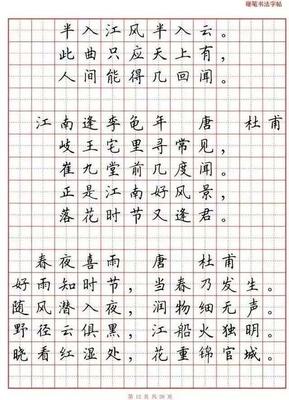 硬笔书法字帖
半入江风半入云。
此曲只应天上有，
人间能得几回闻。
江南逢李龟年 唐 杜甫
岐王宅里寻常见，
崔九堂前几度闻。
正是江南好风景，
落花时节又逢君。
春夜喜雨 唐 杜甫
好雨知时节，当春乃发生。
随风潜入夜，润物细无声。
野径云俱黑，江船火独明。
晓看红湿处，花重锦官城。